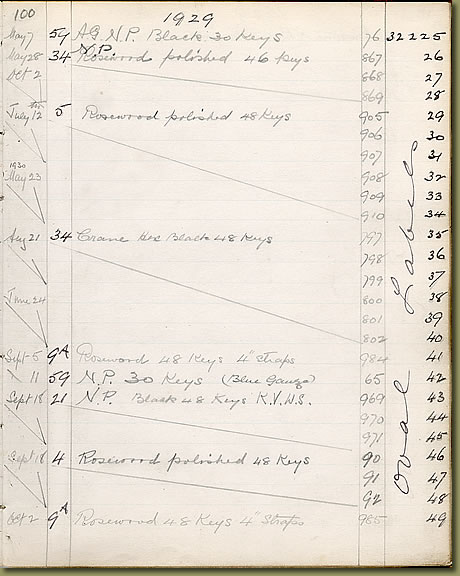 100 1929
May 7 59 A.G. N.P. Black 30 Keys 76 32225
May 28 34 N.P. Rosewood polished 46 keys 867 26
Oct 2 868 27
869 28
July 12 5 Rosewood polished 48 Keys 905 29
906 30
907 31
1930
May 23 908 32
909 33
910 34
Aug 21 34 Crane Hex Black 48 Keys 797 35
798 36
799 37
June 24 800 38
801 39
802 40
Sept 5 9A Rosewood 48 Keys 4" Straps 984 41
11 59 N.P. 30 Keys (Blue Gauze) 65 42
Sept 18 21 N.P. Black 48 Keys R.V.W.S. 969 43
970 44
971 45
Sept 18 4 Rosewood polished 48 Keys 90 46
91 47
92 48
Oct 2 9A Rosewood 48 Keys 4" Straps 985 49
Oval Labels